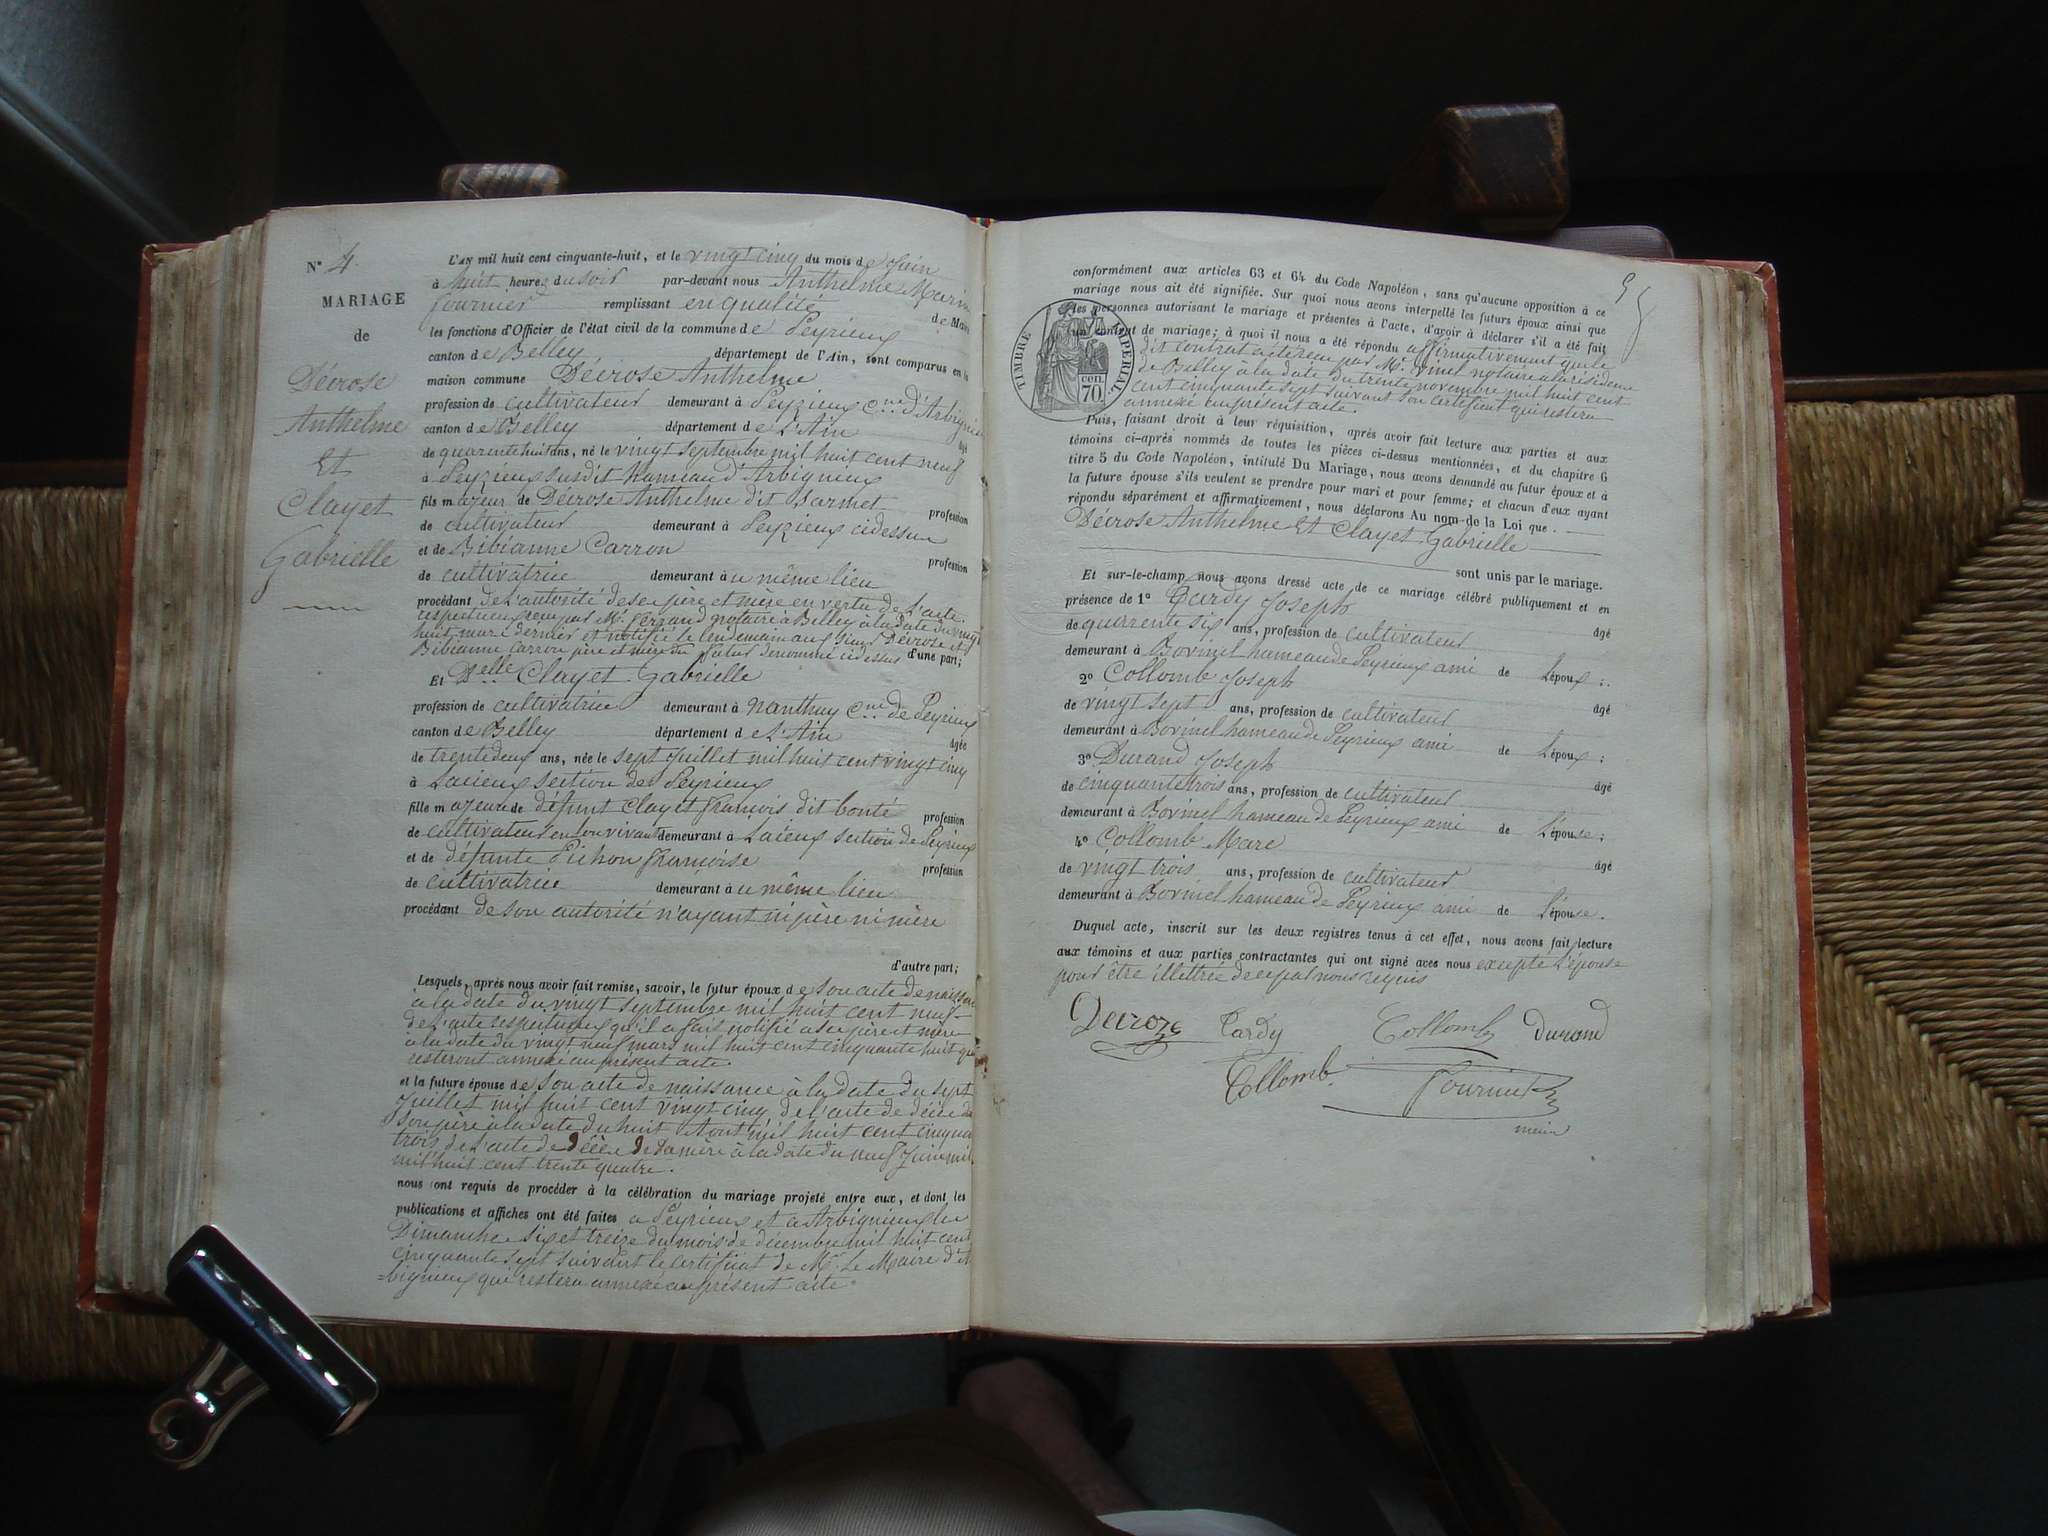 N° 4.
MARIAGE
de
Décrose
Anthelme
Et
Clayet
Gabrielle
L'AN mil huit cent cinquante-huit, et le vingt cinq du mois de Juin
à huit heures du soir par-devant nous Anthelme Marin
fournier remplissant en qualité de Maire
les fonctions d'Officier de l'état civil de la commune de Peyrieux
canton de Belley département de l'Ain, sont comparus en la
maison commune Décrose Anthelme
profession de cultivateur demeurant à Peyzieux cne d'Arbignieu
canton de Belley département de L'Ain âgé
de quarente huit ans, né le vingt septembre mil huit cent neuf
à Peyzieux susdit hameau d'Arbignieux
fils majeur de Décrose Anthelme dit Barmet profession
de cultivateur demeurant à Peyzieux cidessus
et de Bibéanne Carron profession
de cultivatrice demeurant au même lieu
procédant de L'autorité de ses père et mère en vertu de L'acte
respectueux reçu par Me notaire à Belley à la date du vingt
huit mars dernier et notifié le lendemain aux sieurs Décrose et
Bibéanne Carron père et mère du futur dénommé cidessus d'une part;
Et Delle Clayet Gabrielle
profession de cultivatrice demeurant à Nanthuy cne de Peyrieux
canton de Belley département de L'Ain âgée
de trente deux ans, née le sept Juillet mil huit cent vingt cinq
à Lacieux section de Peyrieux
fille majeure de défunt Clayet françois dit bonté profession
de cultivateur en son vivant demeurant à Laieux section de Peyrieux
et de défunte Pichon françoise profession
de cultivatrice demeurant au même lieu
procédant de son autorité n'ayant ni père ni mère
d'autre part;
Lesquels, après nous avoir fait remise, savoir, le futur époux de son acte de naissance
à la date du vingt septembre mil huit cent neuf
de L'acte respectueux qu'il a fait notifié a ses père et mère
à la date du vingt neuf mars mil huit cent cinquante huit qui
resteront annexé au présent acte
et la future épouse de son acte de naissance à la date du sept
Juillet mil huit cent vingt cinq de L'acte de décès de
son père à la date du huit Aout mil huit cent cinquante
trois de L'acte de décès de sa mère à la date du neuf Juin mil
mil huit cent trente quatre.
nous ont requis de procéder à la célébration du mariage projeté entre eux, et dont les
publications et affiches ont été faites a Peyrieux et a Arbignieux les
Dimanches six et treize du mois de décembre mil huit cent
cinquante sept suivant le certificat de Mr Le Maire d'Ar
=bignieux qui restera annexé au présent acte
conformément aux articles 63 et 64 du Code Napoléon, sans qu'aucune opposition à ce
mariage nous ait été signifiée. Sur quoi nous avons interpellé les futurs époux ainsi que
les personnes autorisant le mariage et présentes à l'acte, d'avoir à déclarer s'il a été fait
un contrat de mariage; à quoi il nous a été répondu affirmativement que le
dit contrat acté reçu par Me Vinel notaire à la résidence
de Belley à la date du trente novembre mil huit cent
cent cinquante sept suivant son certificat qui restera
annexé au présent acte.
TIMBRE IMPERIAL
70 cen.
Puis, faisant droit à leur réquisition, après avoir fait lecture aux parties et aux
témoins ci-après nommés de toutes les pièces ci-dessus mentionnées, et du chapitre 6
titre 5 du Code Napoléon, intitulé Du Mariage, nous avons demandé au futur époux et à
la future épouse s'ils veulent se prendre pour mari et pour femme; et chacun d'eux ayant
répondu séparément et affirmativement, nous déclarons Au nom de la Loi que
Décrose Anthelme Et Clayet Gabrielle
sont unis par le mariage.
Et sur-le-champ nous avons dressé acte de ce mariage célébré publiquement et en
présence de 1° Tardy Joseph
de quarente six ans, profession de cultivateur âgé
demeurant à Bovinel hameau de Peyrieux ami de L'époux;
2° Collomb Joseph
de vingt sept ans, profession de cultivateur âgé
demeurant à Bovinel hameau de Peyrieux ami de L'époux;
3° Durand Joseph
de cinquante trois ans, profession de cultivateur âgé
demeurant à Bovinel hameau de Peyrieux ami de L'épouse;
4° Collomb Marc
de vingt trois ans, profession de cultivateur âgé
demeurant à Bovinel hameau de Peyrieux ami de L'épouse.
Duquel acte, inscrit sur les deux registres tenus à cet effet, nous avons fait lecture
aux témoins et aux parties contractantes qui ont signé avec nous excepté L'épouse
pour être illettrée de ce part nous requis
Decroze Tardy Collomb durand
Collomb Fournier
maire